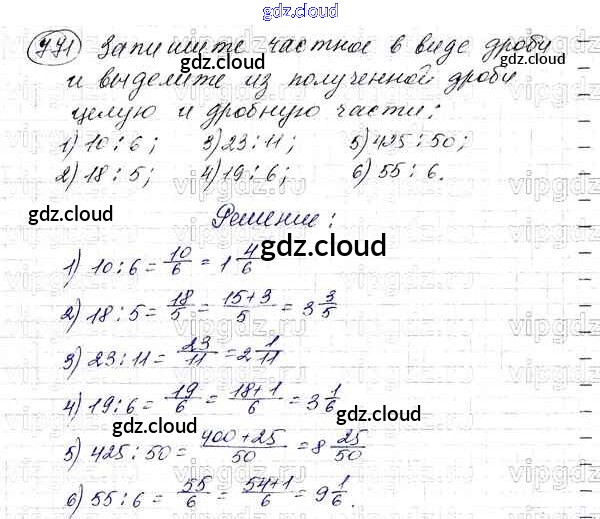 gdz.cloud
771 Запишите частное в виде дроби
и выделите из полученной дроби
целую и дробную части:
1) 10:6; 3) 23:11; 5) 425:50;
2) 18:5; 4) 19:6; 6) 55:6.
Решение:
1) 10:6 = 10/6 = 1 4/6
2) 18:5 = 18/5 = 15+3/5 = 3 3/5
3) 23:11 = 23/11 = 2 1/11
4) 19:6 = 19/6 = 18+1/6 = 3 1/6
5) 425:50 = 400+25/50 = 8 25/50
6) 55:6 = 55/6 = 54+1/6 = 9 1/6.
gdz.cloud
gdz.cloud
gdz.cloud
gdz.cloud
gdz.cloud
gdz.cloud
gdz.cloud
gdz.cloud